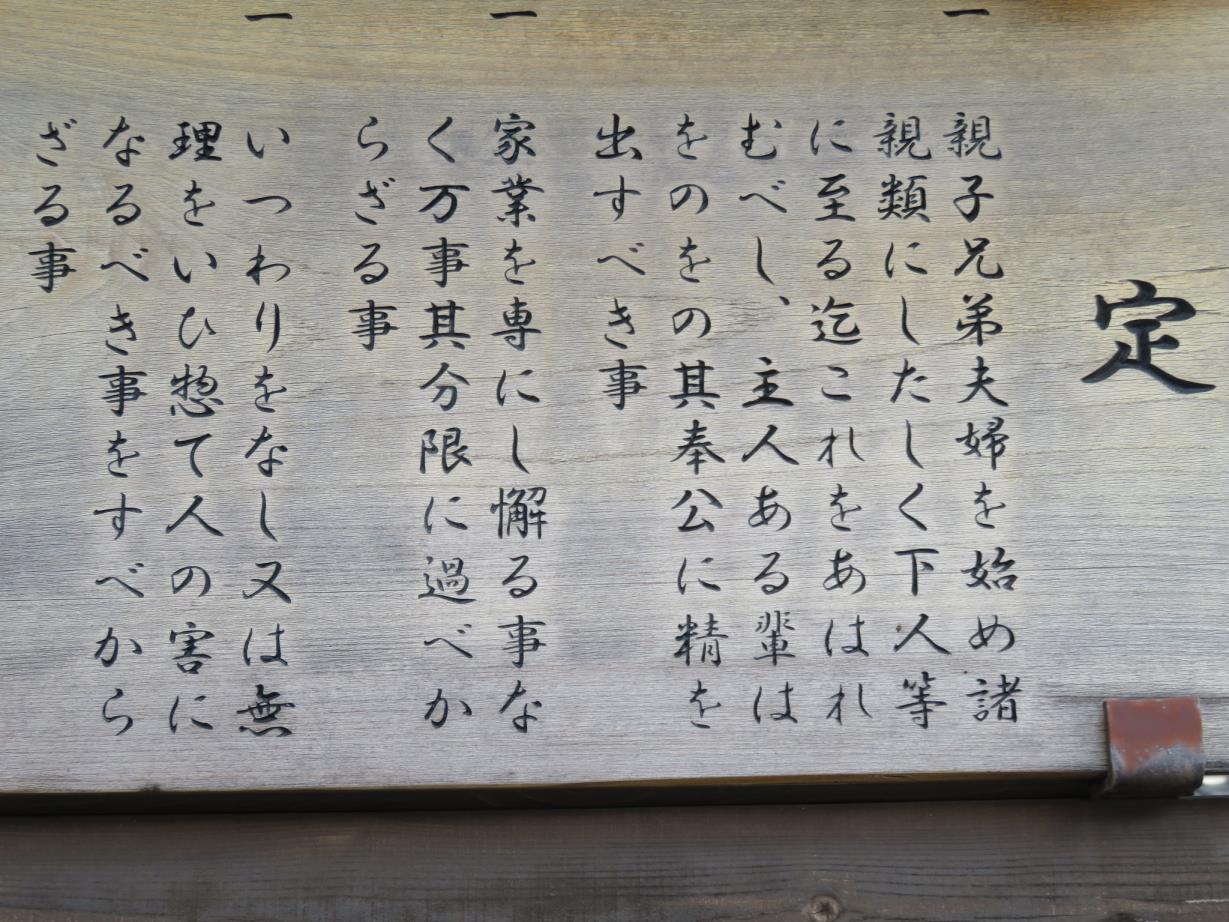 定
一 親子兄弟夫婦を始め諸
親類にしたしく下人等
に至る迄これをあはれ
むべし、主人ある輩は
をのをの其奉公に精を
出すべき事
一 家業を専にし懈る事な
く万事其分限に過べか
らざる事
一 いつわりをなし又は無
理をいひ惣て人の害に
なるべき事をすべから
ざる事